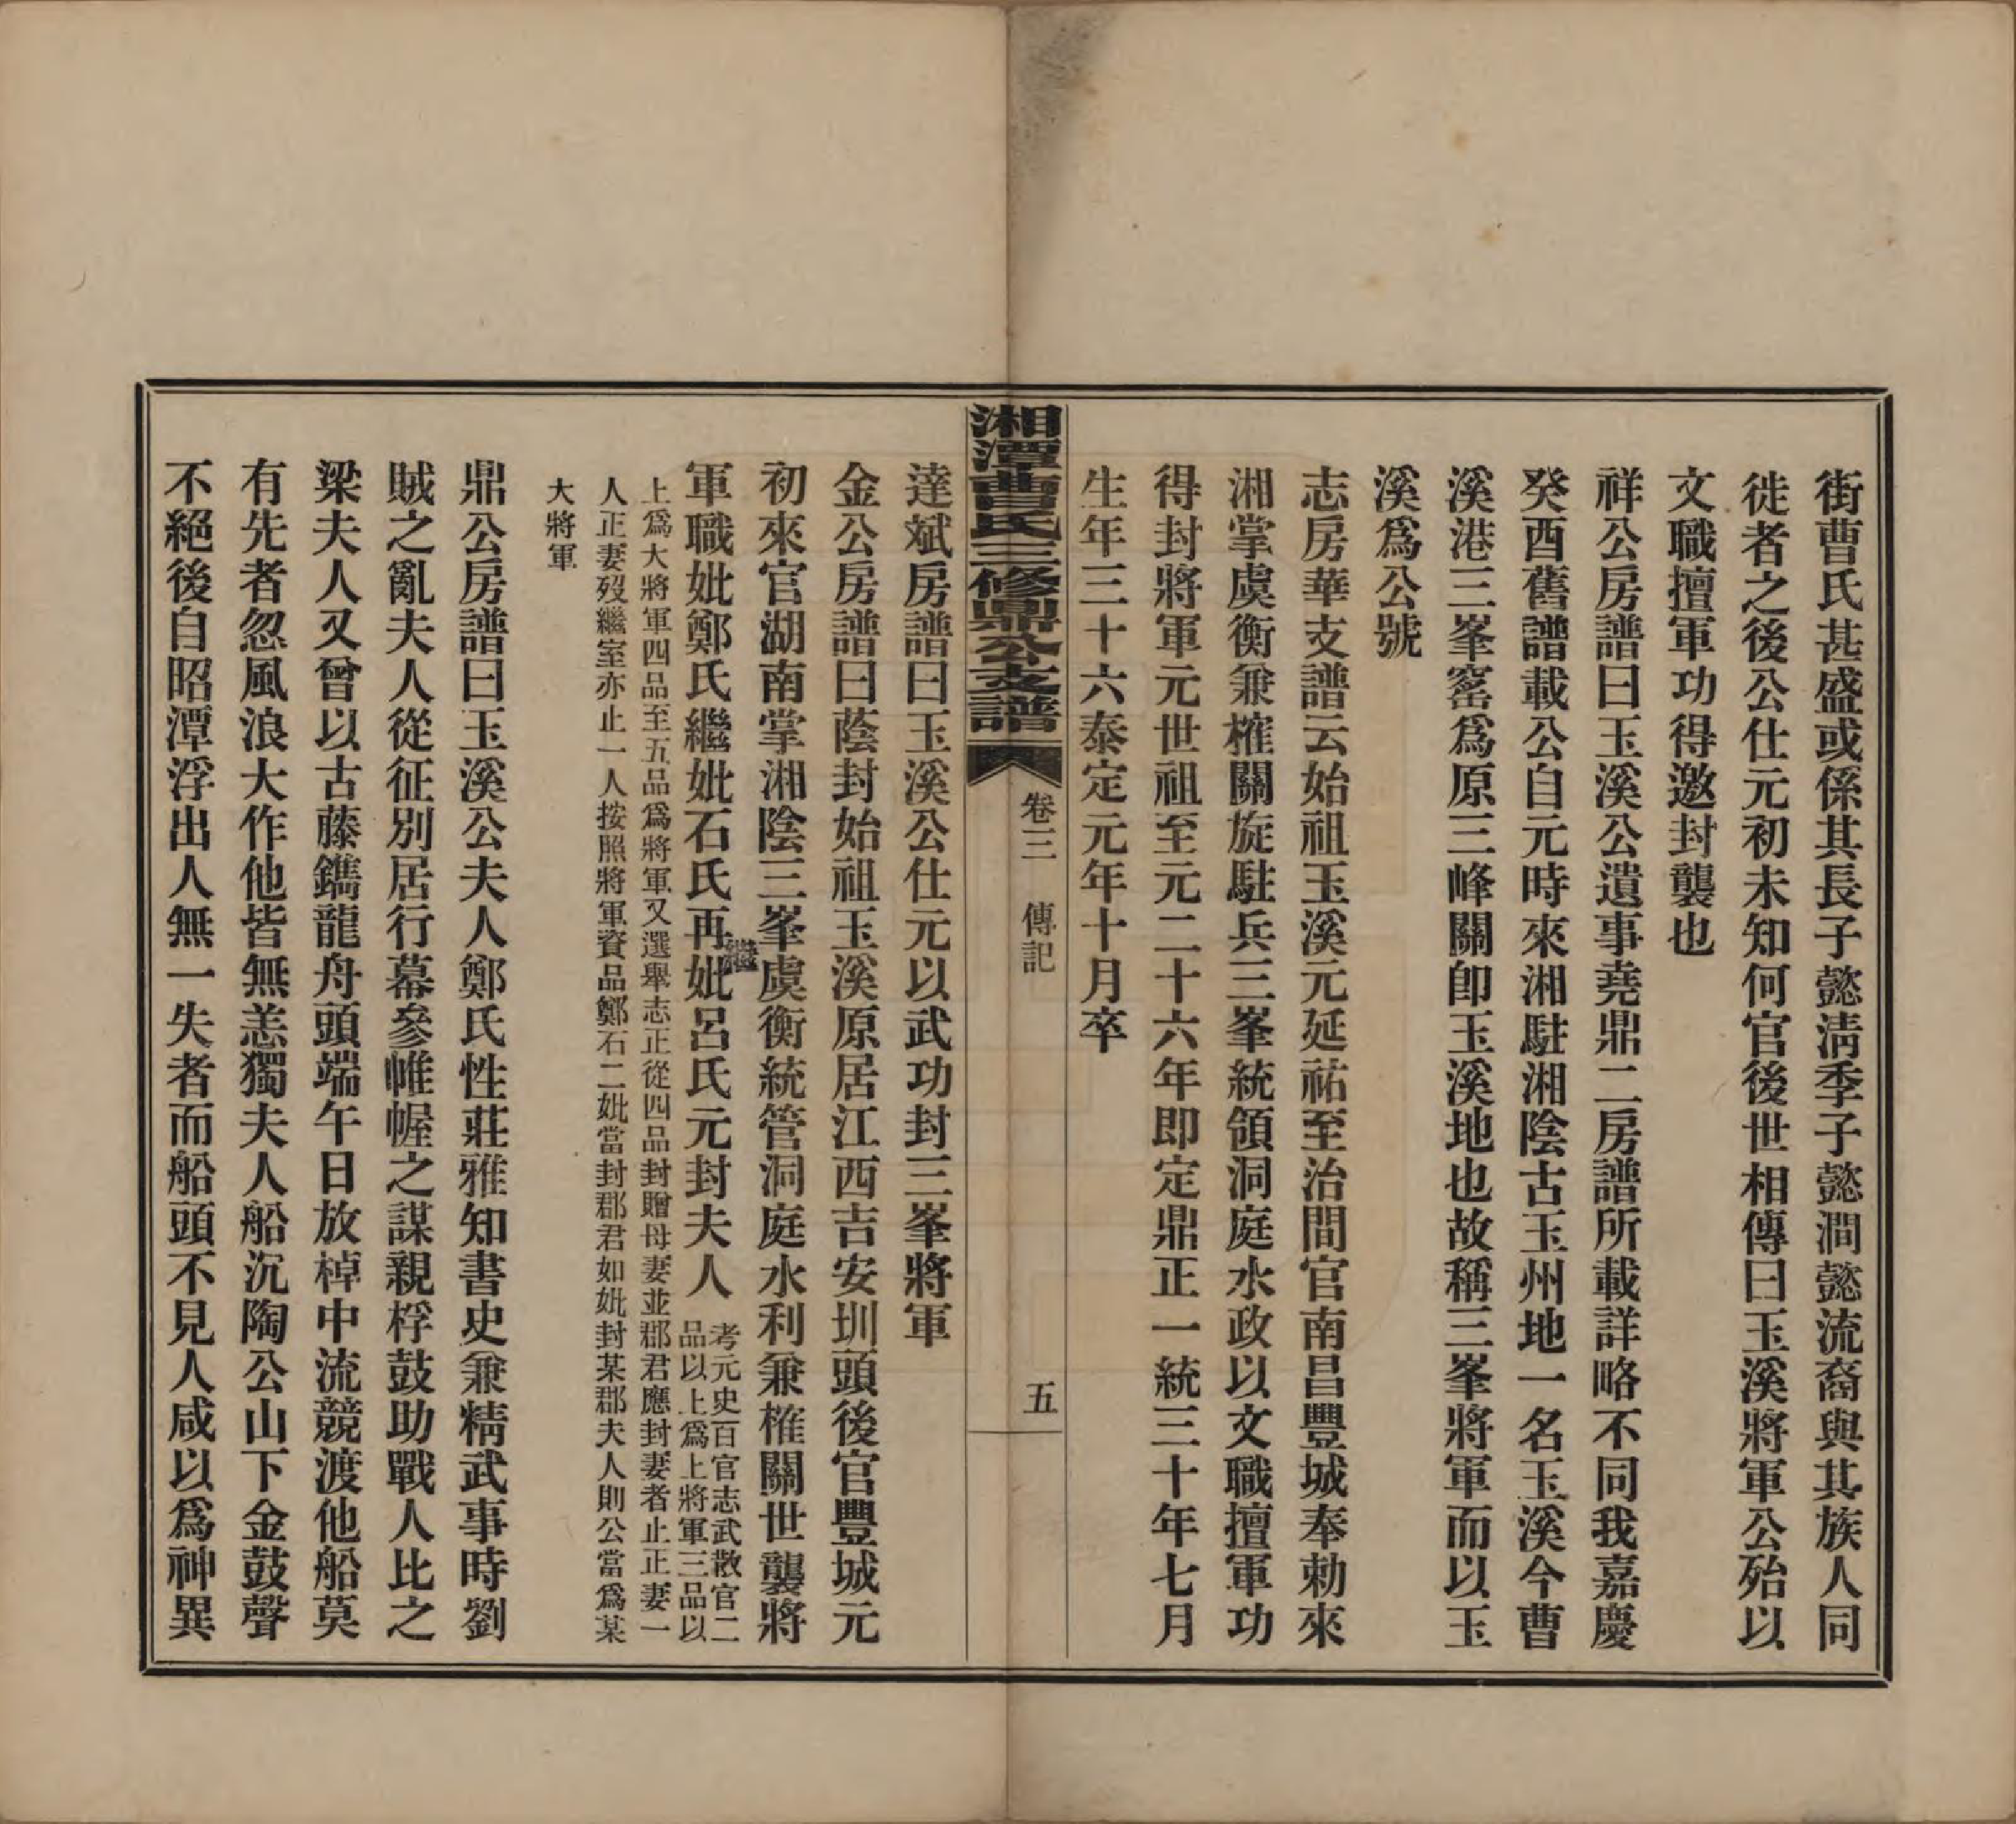 街曹氏甚盛或係其長子懿淸季子懿澗懿流裔與其族人同
徙者之後公仕元初未知何官後世相傳曰玉溪將軍公殆以
文職擅軍功得邀封襲也
祥公房譜曰玉溪公遺事堯鼎二房譜所載詳略不同我嘉慶
癸酉舊譜載公自元時來湘駐湘陰古玉州地一名玉溪今曹
溪港三峯窰爲原三峰關卽玉溪地也故稱三峯將軍而以玉
溪爲公號
志房華支譜云始祖玉溪元延祐至治間官南昌豐城奉勅來
湘掌虞衡兼榷關旋駐兵三峯統領洞庭水政以文職擅軍功
得封將軍元世祖至元二十六年即定鼎正一統三十年七月
生年三十六泰定元年十月卒
湘潭曹氏三修鼎公支譜 卷三 傳記 五
達斌房譜曰玉溪公仕元以武功封三峯將軍
金公房譜曰蔭封始祖玉溪原居江西吉安圳頭後官豐城元
初來官湖南掌湘陰三峯虞衡統管洞庭水利兼榷關世襲將
軍職妣鄭氏繼妣石氏再繼妣呂氏元封夫人
考元史百官志武散官二
品以上爲上將軍三品以
上爲大將軍四品至五品爲將軍又選舉志正從四品封贈母妻並郡君應封妻者止正妻一
人正妻歿繼室亦止一人按照將軍資品鄭石二妣當封郡君如妣封某郡夫人則公當爲某
大將軍
鼎公房譜曰玉溪公夫人鄭氏性莊雅知書史兼精武事時劉
賊之亂夫人從征別居行幕參帷幄之謀親桴鼓助戰人比之
梁夫人又曾以古藤鐫龍舟頭端午日放棹中流競渡他船莫
有先者忽風浪大作他皆無恙獨夫人船沉陶公山下金鼓聲
不絕後自昭潭浮出人無一失者而船頭不見人咸以爲神異